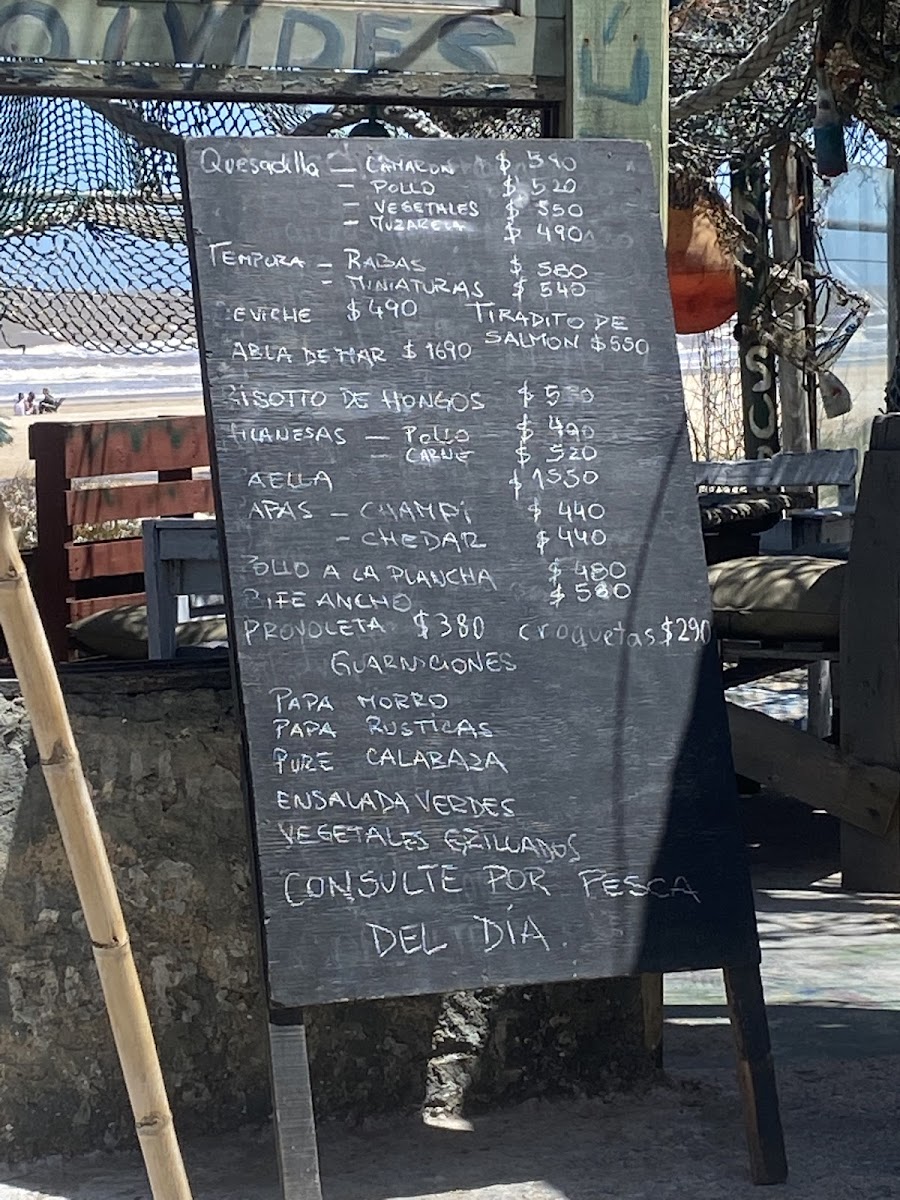 OLVIDES
Ú
SU
Quesadilla — CAMARON $ 590
- POLLO $ 520
- VEGETALES $ 550
- MUZARELA $ 490
TEMPURA - RABAS $ 580
- MINIATURAS $ 540
EVICHE $490 TIRADITO DE
SALMON $550
ABLA DE MAR $ 1690
RISOTTO DE HONGOS
MILANESAS - POLLO $ 490
- CARNE $ 520
AELLA $1550
APAS - CHAMPI $ 440
- CHEDAR $ 440
POLLO A LA PLANCHA $ 480
BIFE ANCHO $ 580
PROVOLETA $380 croquetas $290
GUARNICIONES
PAPA MORRO
PAPA RUSTICAS
PURE CALABAZA
ENSALADA VERDES
VEGETALES GRILLADOS
CONSULTE POR PESCA
DEL DÍA.